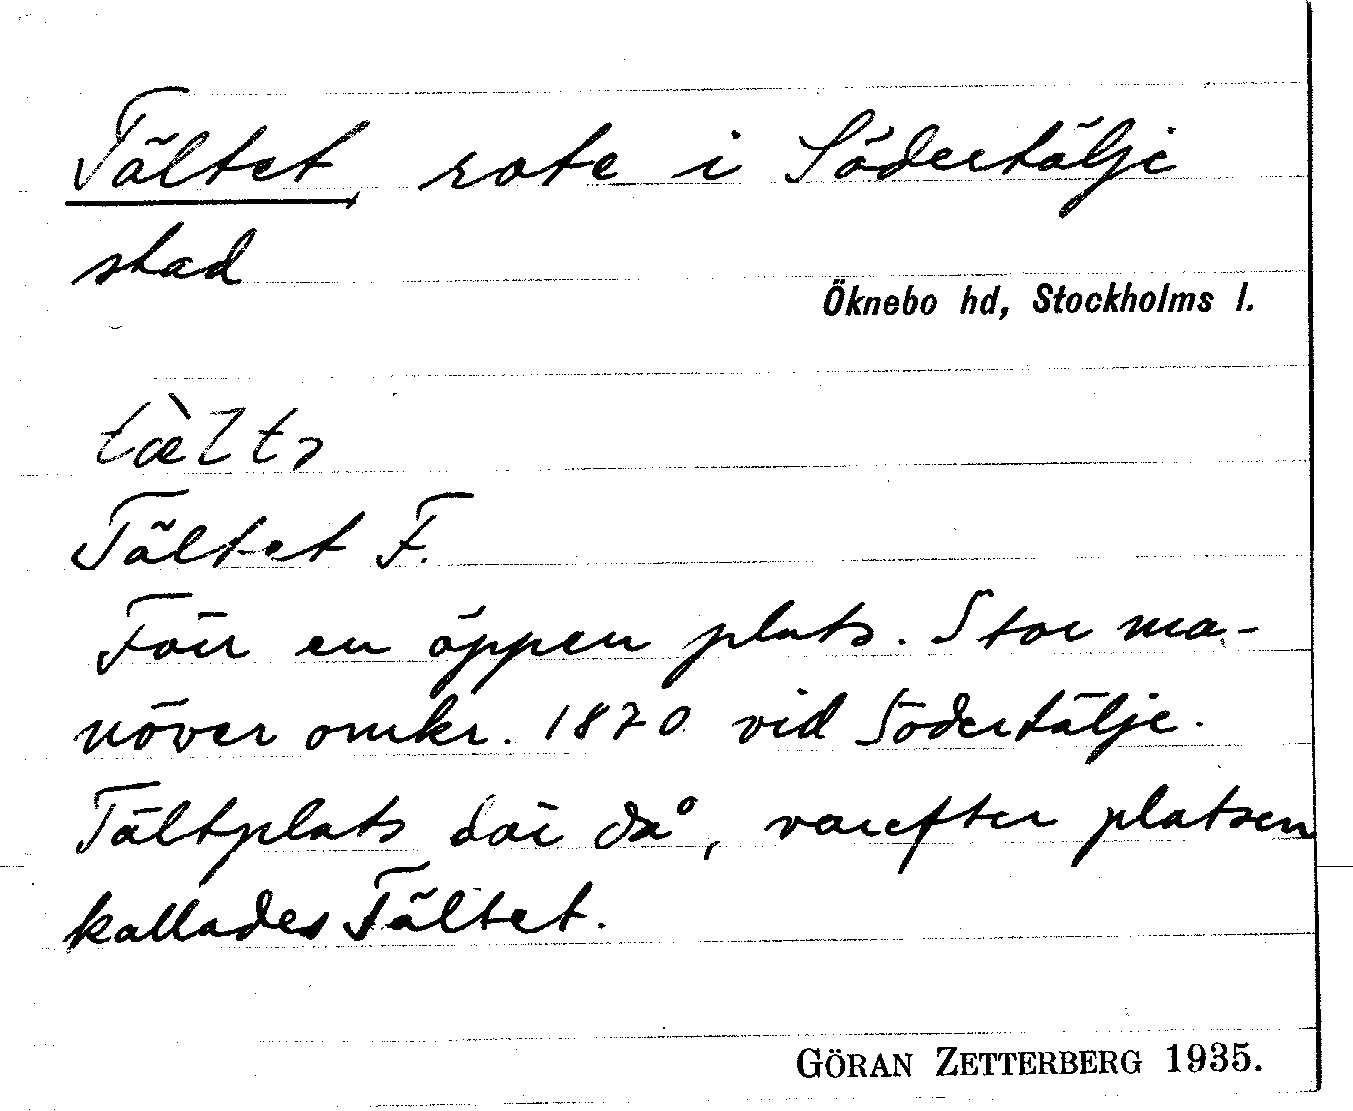 Tältet, rote i Södertälje
stad
Öknebo hd, Stockholms l.
tæ̀ltə
Tältet F.
Förr en öppen plats. Stor ma-
növer omkr. 1870 vid Södertälje.
Tältplats där då, varefter platsen
kallades Tältet.
GÖRAN ZETTERBERG 1935.